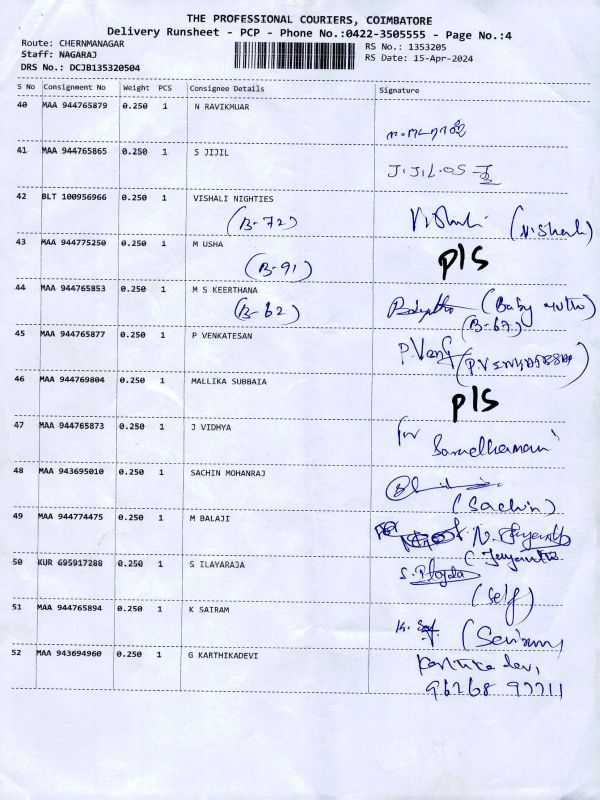 THE PROFESSIONAL COURIERS, COIMBATORE
Delivery Runsheet - PCP - Phone No.:0422-3505555 - Page No.:4
Route: CHERNMANAGAR RS No.: 1353205
Staff: NAGARAJ RS Date: 15-Apr-2024
DRS No.: DCJB135320504
S No Consignment No Weight PCS Consignee Details Signature
40 MAA 944765879 0.250 1 N RAVIKMUAR
41 MAA 944765865 0.250 1 S JIJIL
JIJIL.OS
42 BLT 100956966 0.250 1 VISHALI NIGHTIES
(B-72) Vishali (Vishali)
43 MAA 944775250 0.250 1 M USHA
(B-91) P/S
44 MAA 944765853 0.250 1 M S KEERTHANA
(B-62) (Baby muthu)
(B-67)
45 MAA 944765877 0.250 1 P VENKATESAN
P.Venk
46 MAA 944769804 0.250 1 MALLIKA SUBBAIA
P/S
47 MAA 944765873 0.250 1 J VIDHYA
for
48 MAA 943695010 0.250 1 SACHIN MOHANRAJ
(Sachin)
49 MAA 944774475 0.250 1 M BALAJI
N. Jayanthi
(Jayanthi
50 KUR 695917288 0.250 1 S ILAYARAJA
(self)
51 MAA 944765894 0.250 1 K SAIRAM
K. (Sairam)
52 MAA 943694960 0.250 1 G KARTHIKADEVI
Karthika devi,
96268 97711